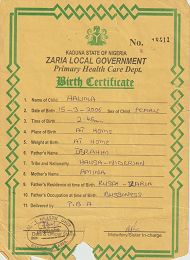 KADUNA STATE OF NIGERIA
No.
ZARIA LOCAL GOVERNMENT
Primary Health Care Dept.
Birth Certificate
1 Name of Child HALIMA
2 Date of Birth 15-3-2005 Sex of Child FEMALE
3 Time
4 Place of Birth AT HOME
5 Weight at Birth AT HOME
6 Father's Name IBRAHIM
7 Tribe and Nationality HAUSA-NIGERIAN
8 Mother's Name AMINA
9 Father's Residence at time of Birth ZARIA
10 Father's Occupation at time of Birth BUSSINESS
11 Delivered by T.B.A
Midwifery/Sister in-charge